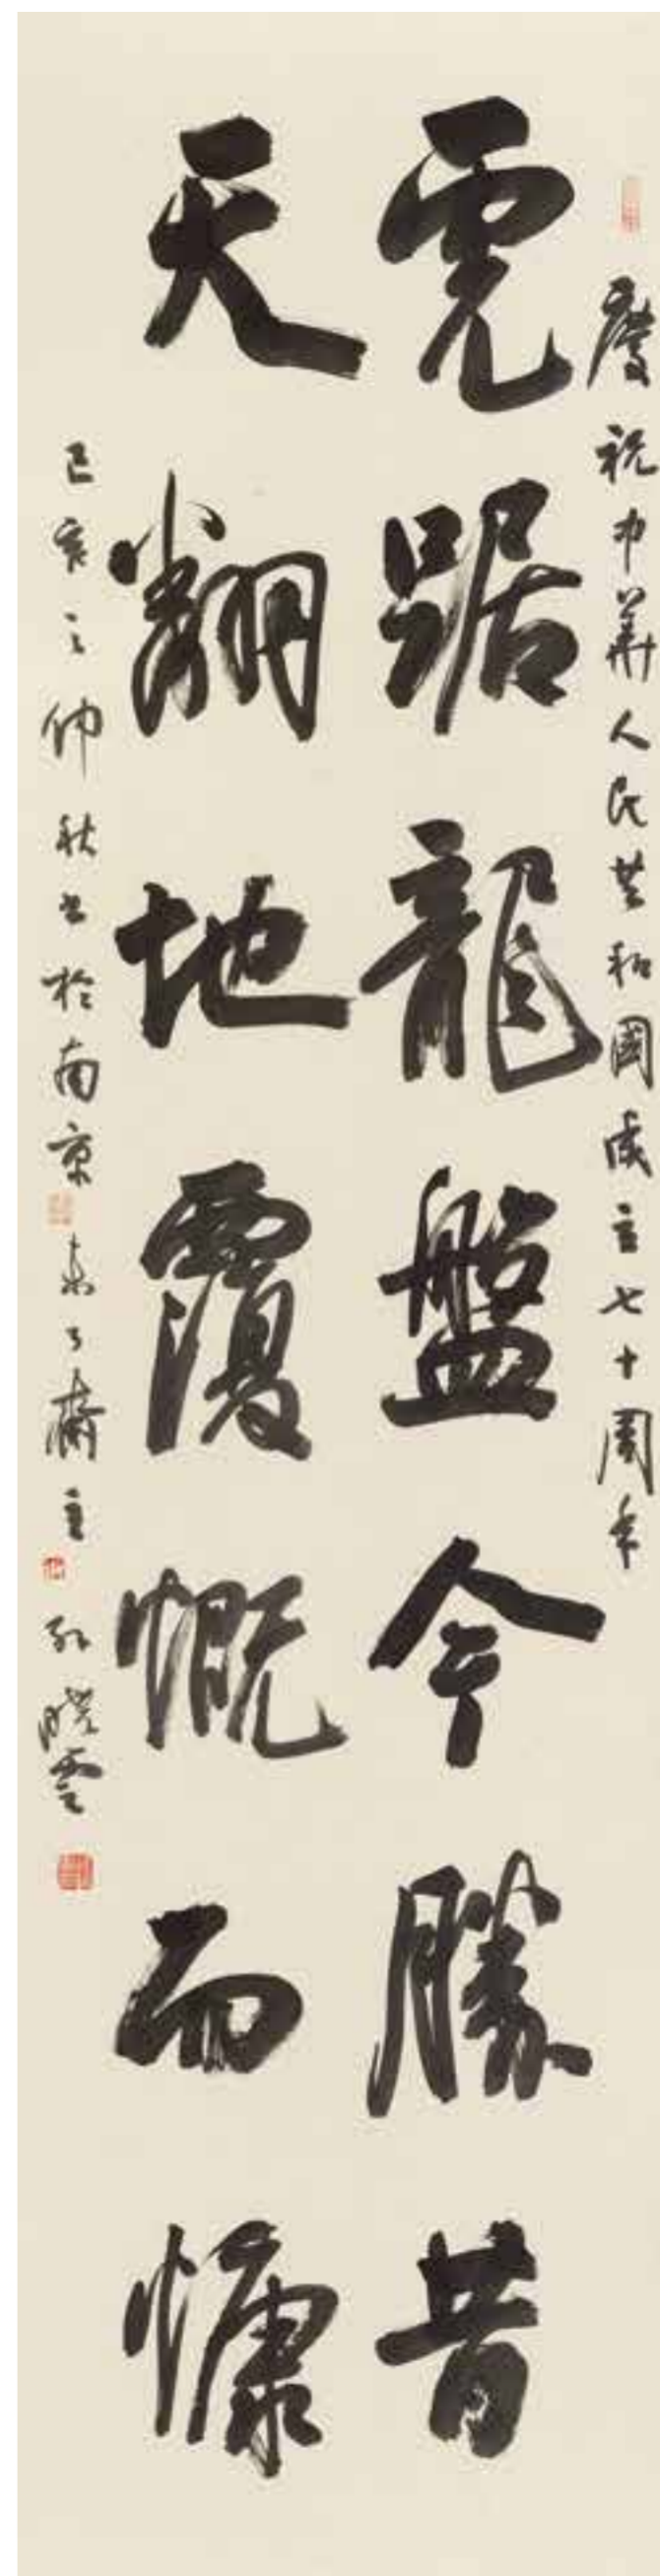 慶祝中華人民共和國成立七十周年
虎踞龍盤今勝昔
天翻地覆慨而慷
己亥之仲秋書於南京
孫曉雲